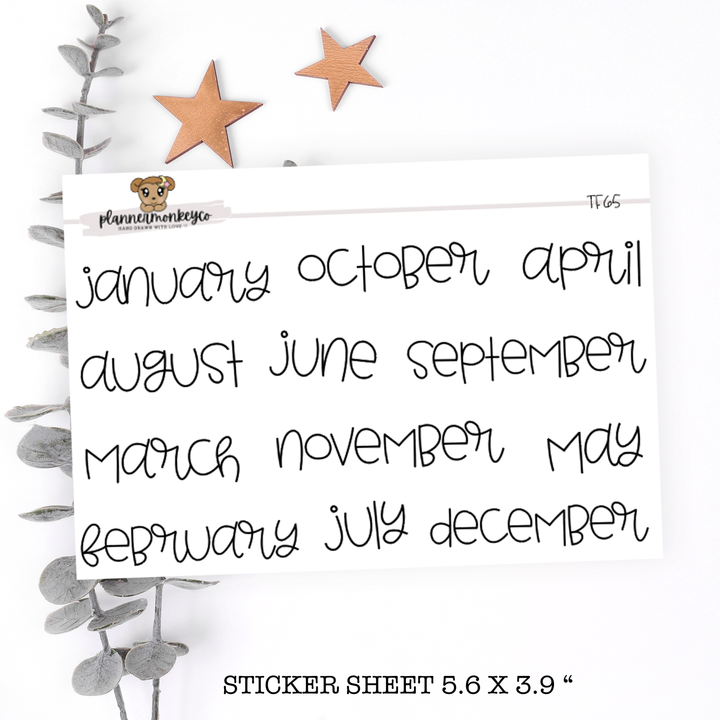 plannermonkeyco
HAND DRAWN WITH LOVE
TF65
january october april
august june september
march november may
february july december
STICKER SHEET 5.6 X 3.9 “